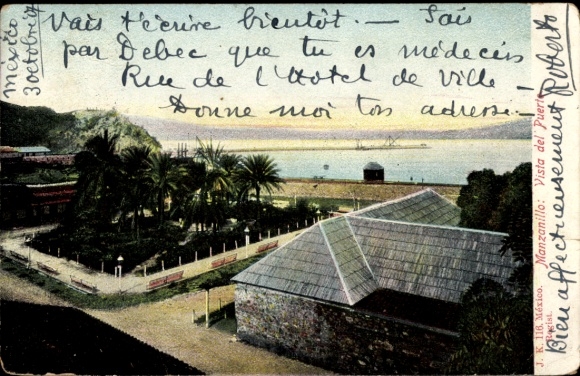 Vais t'écrire bientôt. — Sais
par Debec que tu es médecin
Rue de l'Hotel de Ville —
Donne moi ton adresse —
Mexico
3 octobre
Manzanillo: Vista del Puerto
J. K. 116. México.
Regist.
Bien affectueusement Roberto